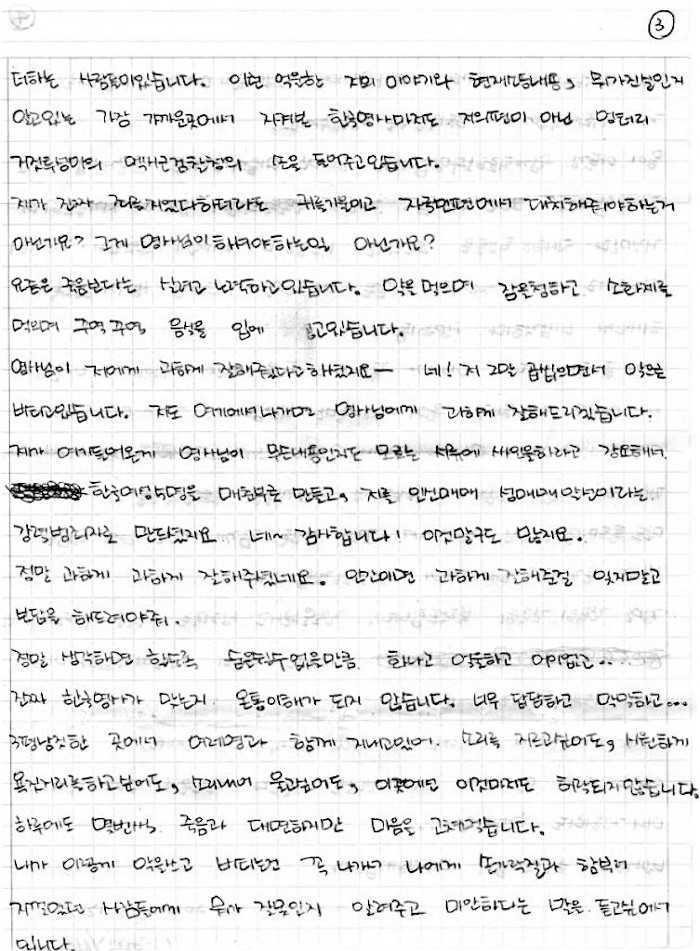 ③
더하는 사람들이있습니다. 이런 억울한 저의 이야기와 현재 내용, 뭐가진실인지
알고있는 가장 가까운곳에서 지켜본 한국영사마저도 저의편이 아닌 엉터리
거짓투성이의 멕시코검찰청의 손을 들어주고있습니다.
제가 진짜 죄를지었다하더라도 자국민편에서 대처해줘야하는거
아닌가요? 그게 영사님이해줘야하는일 아닌가요?
요즘은 죽음보다는 살려고 노력하고있습니다. 약을먹으며 잠을청하고 소화제를
먹으며 꾸역꾸역 음식을 입에 넣고있습니다.
영사님이 저에게 과하게 잘해주었다고하셨지요— 네! 저 그말 곱씹으면서 악으로
버티고있습니다. 저도 여기에서나가면 영사님에게 과하게 잘해드리겠습니다.
제가 여기들어온게 영사님이 무슨내용인지도 모르는 서류에 싸인을하라고 강요해서.
한국여성5명은 매춘부로 만들고, 저를 인신매매 성매매 악년이라는
강력범죄자로 만드셨지요 네~ 감사합니다! 이것말구도 많지요.
정말 과하게 과하게 잘해주셨네요. 인간이면 과하게 잘해준걸 잊지말고
보답을 해드려야죠.
정말 생각하면 할수록 숨을쉴수없을만큼 화나고 억울하고 어이없고..
진짜 한국영사가 맞는지 온통이해가 되지 않습니다. 너무 답답하고 막막하고...
3평남짓한 곳에서 여레명과 함께 지내고있어. 소리를 지르고싶어도, 시원하게
욕진거리를하고싶어도, 소리내어 울고싶어도, 이곳에선 이것마저도 허락되지않습니다
하루에도 몇번씩 죽음과 대면하지만 마음을 고쳐먹습니다.
내가 이렇게 악을쓰고 버티는건 꼭 나가서 나에게 손가락질과 함부러
지껄였던 사람들에게 무가 잘못인지 알려주고 미안하다는 말을 듣고싶어서
입니다.